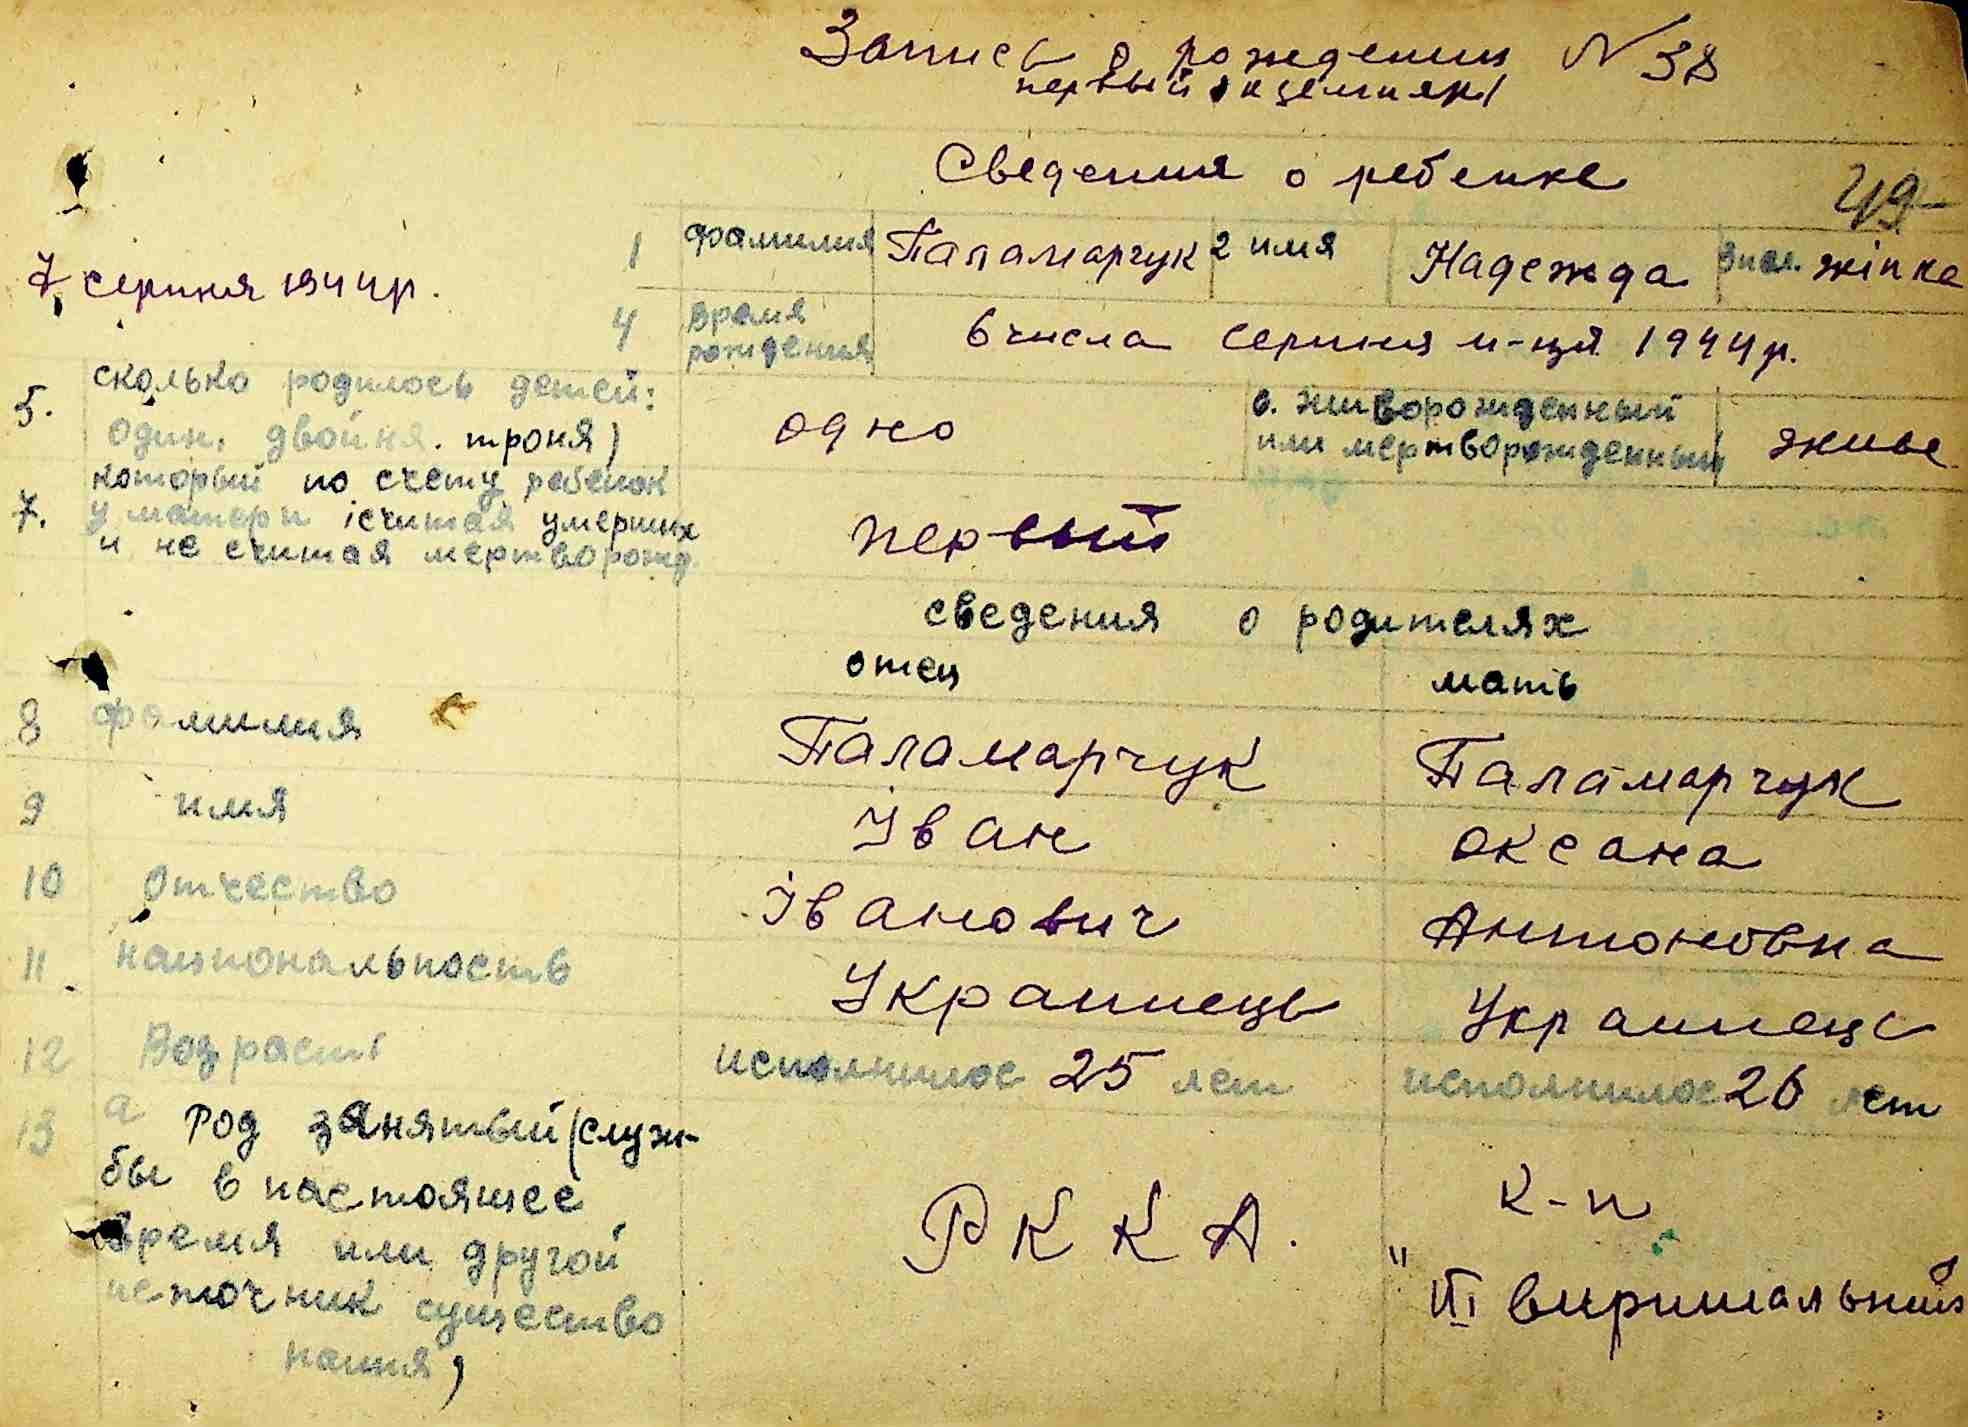 Запись о рождении N 38
первый экцемпляр
Сведения о ребенке
49
7 серпня 1944р.
1 фамилия Паламарчук 2 имя Надежда 3 пол. жінка
4 время рождения 6 числа серпня м-ця 1944р.
5. сколько родилось детей: один, двойня. троня) одно 6. живорожденный или мертворожденный живе
7. который по счету ребенок у матери (считая умерших и не считая мертворожд. первый
сведения о родителях
отец мать
8 фамилия Паламарчук Паламарчук
9 имя Іван Оксана
10 отчество Іванович Антоновна
11 национальность Украинець Украинець
12 Возраст исполнилос 25 лет исполнилос 26 лет
13 а Род занятый (служ-
бы в настоящее
время или другой
источник существо
нания)
Р К К А.
к-п
" ІІІ виришальний